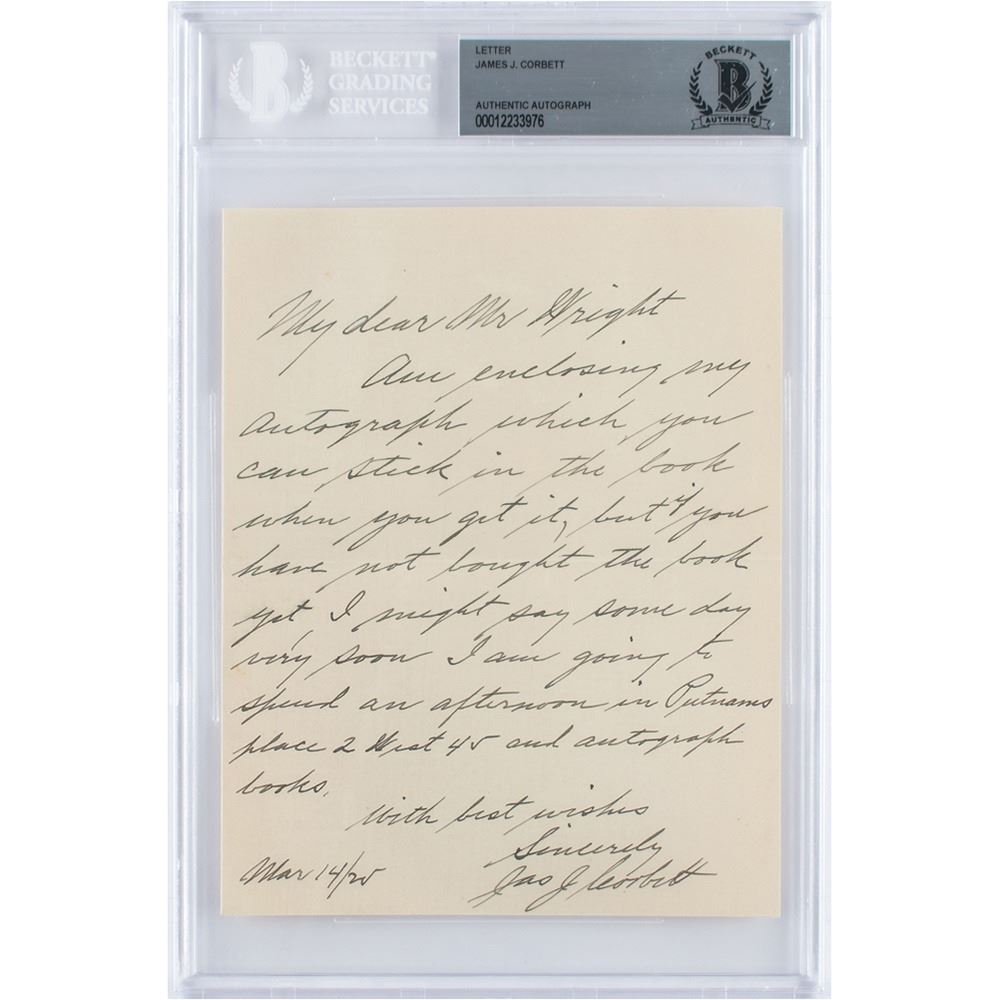 BECKETT®
GRADING
SERVICES
LETTER
JAMES J. CORBETT
AUTHENTIC AUTOGRAPH
00012233976
BECKETT
B
AUTHENTIC
My dear Mr Wright
Am enclosing my
autograph which you
can stick in the book
when you get it, but if you
have not bought the book
yet, I might say some day
very soon I am going to
spend an afternoon in Putnams
place 2 West 45 and autograph
books.
With best wishes
Sincerely
Jas J Corbett
Mar 14/25